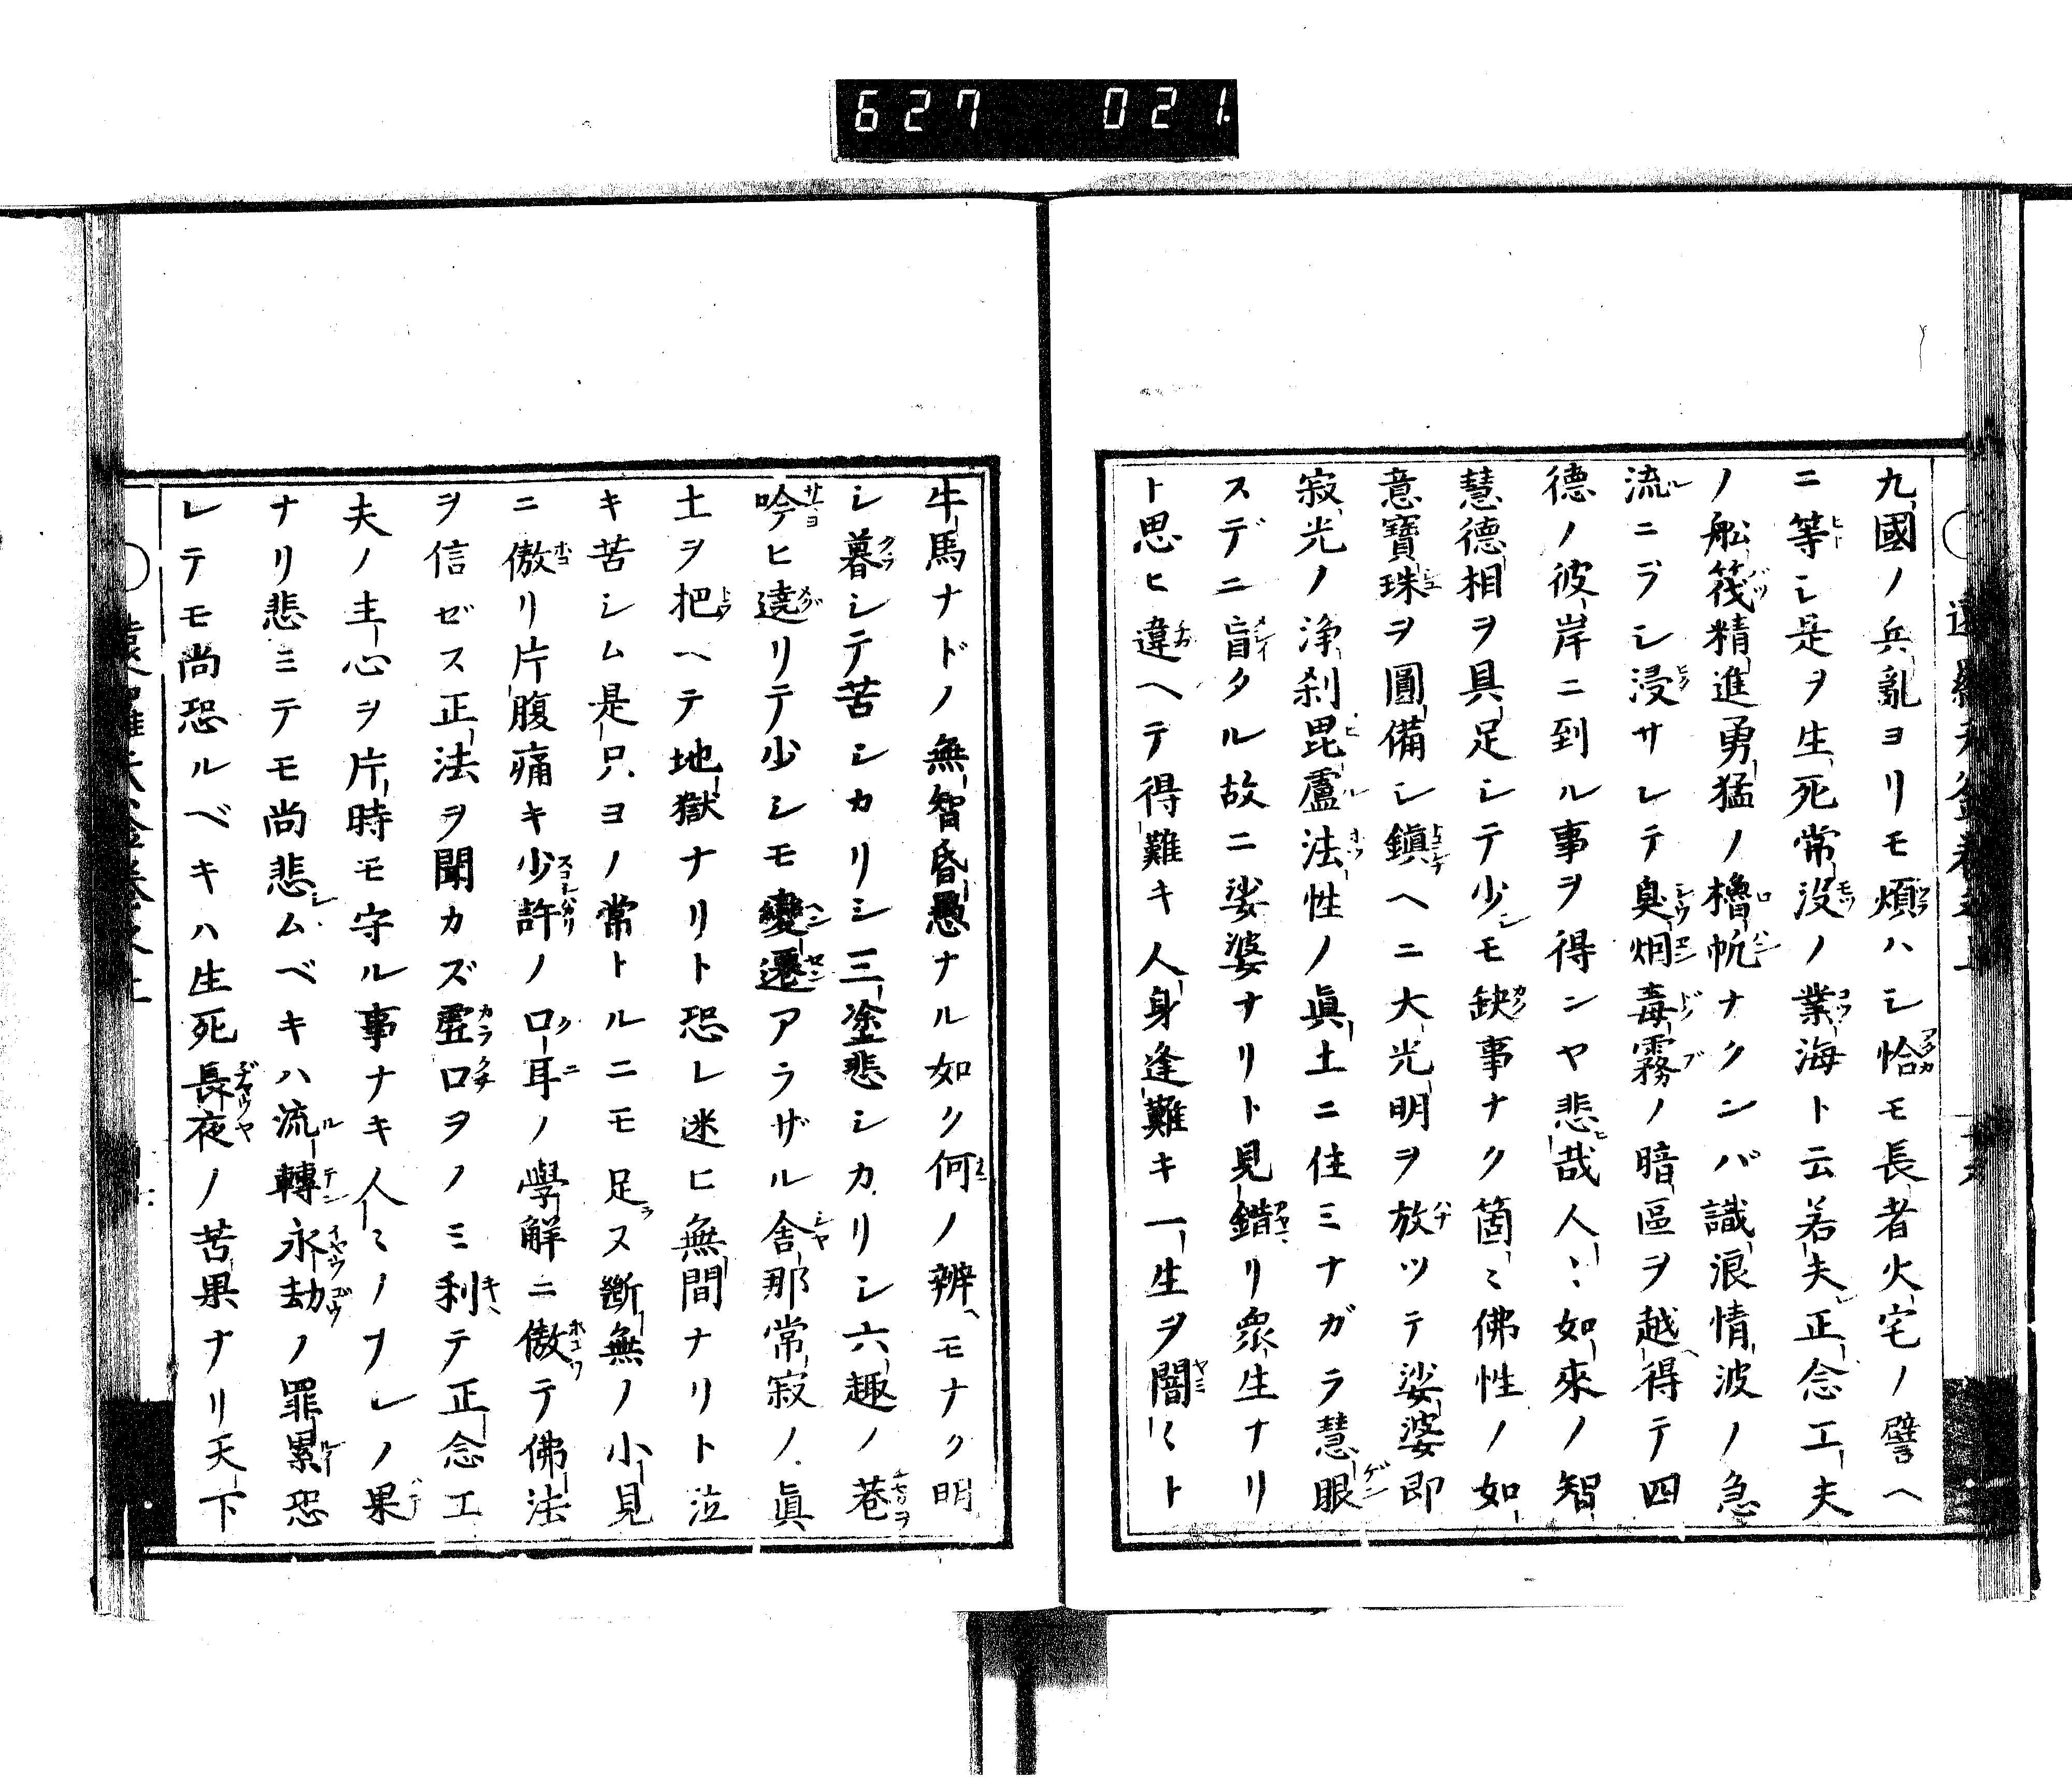 627 021
九國ノ兵亂ヨリモ煩ハシ恰モ長者火宅ノ譬ヘ
ニ等シ是ヲ生死常没ノ業海ト云若夫正念工夫
ノ舩筏精進勇猛ノ櫓帆ナクンバ識浪情波ノ急
流ニヲシ浸サレテ臭烟毒霧ノ暗區ヲ越得テ四
德ノ彼岸ニ到ル事ヲ得ンヤ悲哉人〻如來ノ智
慧德相ヲ具足シテ少モ缺事ナク箇〻佛性ノ如
意寶珠ヲ圓備シ鎮ヘニ大光明ヲ放ツテ娑婆即
寂光ノ浄刹毘盧法性ノ眞土ニ住ミナガラ慧眼
スデニ盲タル故ニ娑婆ナリト見錯リ衆生ナリ
ト思ヒ違ヘテ得難キ人身逢難キ一生ヲ闇〻ト
牛馬ナドノ無智昏愚ナル如ク何ノ辨ヘモナク明
シ暮シテ苦シカリシ三塗悲シカリシ六趣ノ巷
吟ヒ遶リテ少シモ變遷アラザル舎那常寂ノ眞
土ヲ把ヘテ地獄ナリト恐レ迷ヒ無間ナリト泣
キ苦シム是只ヨノ常トルニモ足ヌ斷無ノ小見
ニ傲リ片腹痛キ少許ノ口耳ノ學解ニ傲テ佛法
ヲ信ゼス正法ヲ聞カズ虚口ヲノミ利テ正念工
夫ノ主心ヲ片時モ守ル事ナキ人〻ノヲレノ果
ナリ悲ミテモ尚悲ムベキハ流轉永劫ノ罪累恐
レテモ尚恐ルベキハ生死長夜ノ苦果ナリ天下